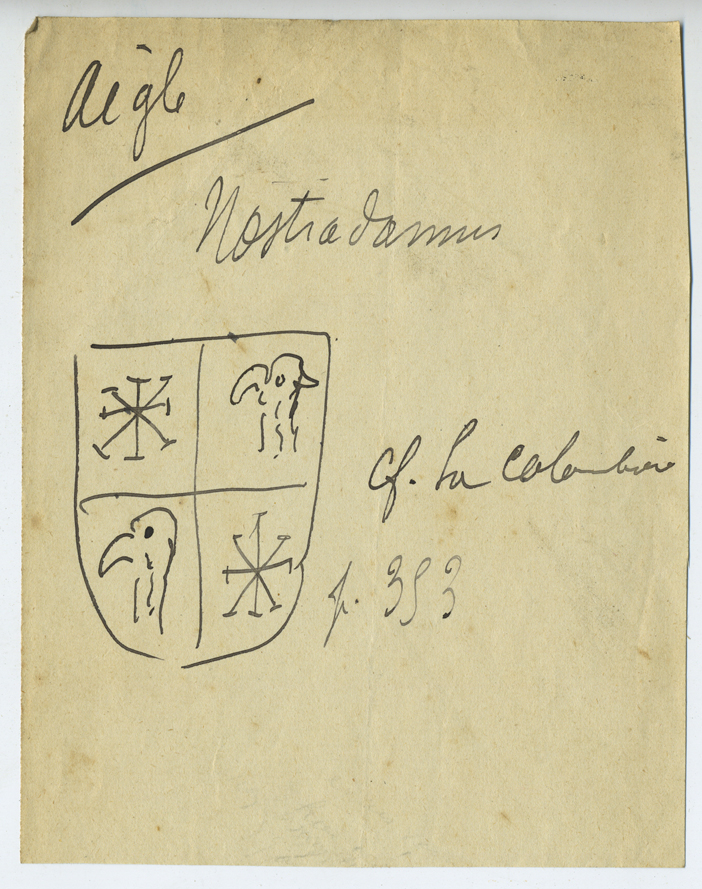 Aigle
Nostradamus
cf. La Colombière
p. 353